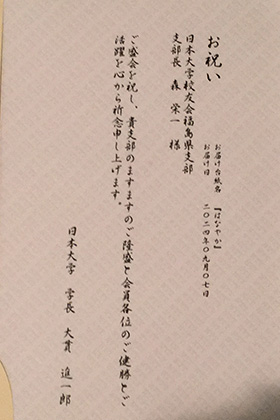 お祝い
お届け台紙名 『はなやか』
お届け日 二〇二四年〇九月〇七日
日本大学校友会福島県支部
支部長 森 栄一 様
ご盛会を祝し、貴支部のますますのご隆盛と会員各位のご健勝とご
活躍を心から祈念申し上げます。
日本大学 学長 大貫 進一郎